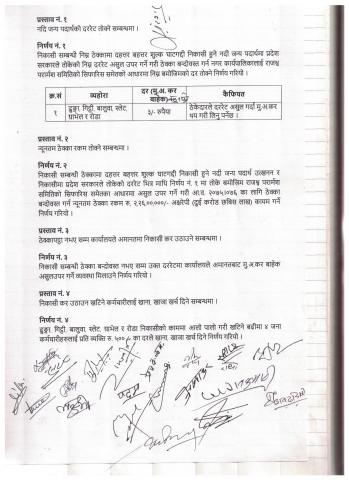 प्रस्ताव नं. १
नदि जन्य पदार्थको दररेट तोक्ने सम्बन्धमा ।
निर्णय नं. १
निकासी सम्बन्धी निम्न ठेक्कामा दहत्तर बहत्तर शुल्क घाटगद्दी निकासी हुने नदी जन्य पदार्थमा प्रदेश
सरकारले तोकेको निम्न दररेट असुल उपर गर्ने गरी ठेक्का बन्दोवस्त गर्न नगर कार्यपालिकालाई राजश्व
परार्मश समितिको सिफारिस समेतको आधारमा निम्न बमोजिमको दर तोक्ने निर्णय गरियो ।
क्र.सं व्यहोरा दर (मु.अ. कर बाहेक) कैफियत
१ ढुङ्गा, गिट्टी, बालुवा, स्लेट, ग्राभेल र रोडा ३/- रुपैया ठेकेदारले दररेट असुल गर्दा मु.अ.कर थप गरी लिनु पर्नेछ ।
प्रस्ताव नं. २
न्यूनतम ठेक्का रकम तोक्ने सम्बन्धमा ।
निर्णय नं. २
निकासी सम्बन्धी ठेक्कामा दहत्तर बहत्तर शुल्क घाटगद्दी निकासी हुने नदी जन्य पदार्थ उत्खनन र
निकासीमा प्रदेश सरकारले तोकेको दररेट भित्र माथि निर्णय नं. १ मा तोके बमोजिम राजश्व परार्मश
समितिको सिफारिस समेतका आधारमा असुल उपर गर्ने गरी आ.व. २०७५/०७६ का लागि ठेक्का
बन्दोवस्त गर्न न्यूनतम ठेक्का रकम रु. २,२६,००,०००/- अक्षरेपी (दुई करोड छबिस लाख) कायम गर्ने
निर्णय गरियो ।
प्रस्ताव नं. ३
ठेक्कापट्टा नभए सम्म कार्यालयले अमानतमा निकासी कर उठाउने सम्बन्धमा ।
निर्णय नं. ३
निकासी सम्बन्धी ठेक्का बन्दोवस्त नभए सम्म उक्त दररेटमा कार्यालयले अमानतबाट मु.अ.कर बाहेक
असुलउपर गर्ने व्यवस्था मिलाउने निर्णय गरियो ।
प्रस्ताव नं. ४
निकासी कर उठाउन खटिने कर्मचारीलाई खाना, खाजा खर्च दिने सम्बन्धमा ।
निर्णय नं. ४
ढुङ्गा, गिट्टी, बालुवा, स्लेट, ग्राभेल र रोडा निकासीको काममा आलो पालो गरी खटिने बढीमा ४ जना
कर्मचारीहरुलाई प्रति व्यक्ति रु. ५००/- का दरले खाना, खाजा खर्च दिने निर्णय गरियो ।